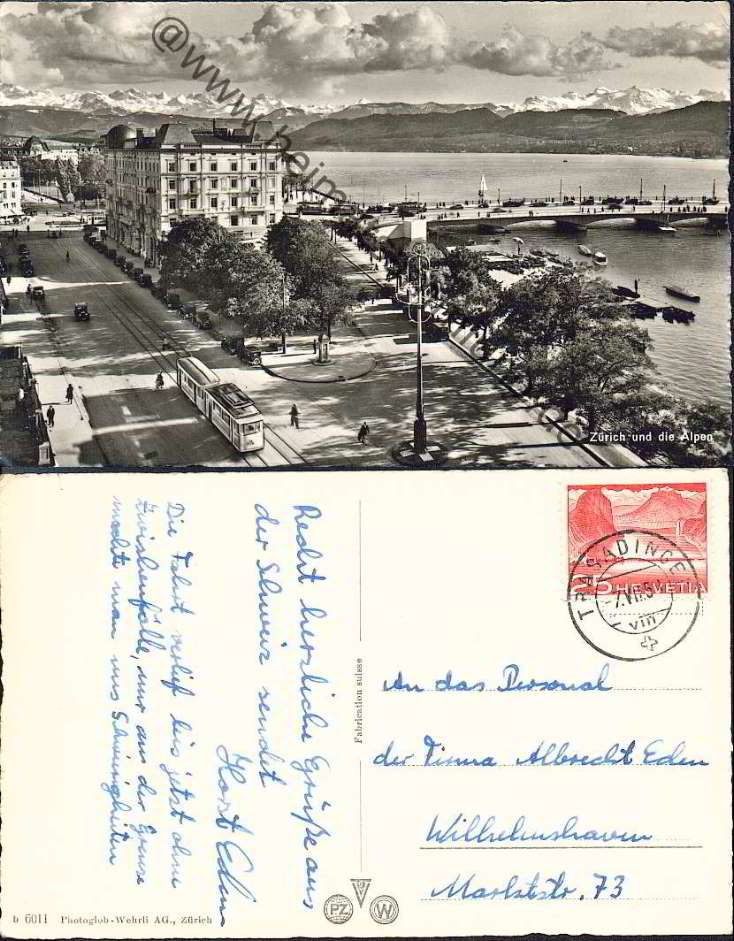 @www.heim
Zürich und die Alpen
Recht herzliche Grüße aus
der Schweiz sendet
Horst Eden
Die Fahrt verlief bis jetzt ohne
Zwischenfälle, nur an der Grenze
machte man uns Schwierigkeiten
Fabrication suisse
HELVETIA
VIII
An das Personal
der Firma Albrecht Eden
Wilhelmshaven
Marktstr. 73
b 6011 Photoglob-Wehrli AG., Zürich
PZ
W